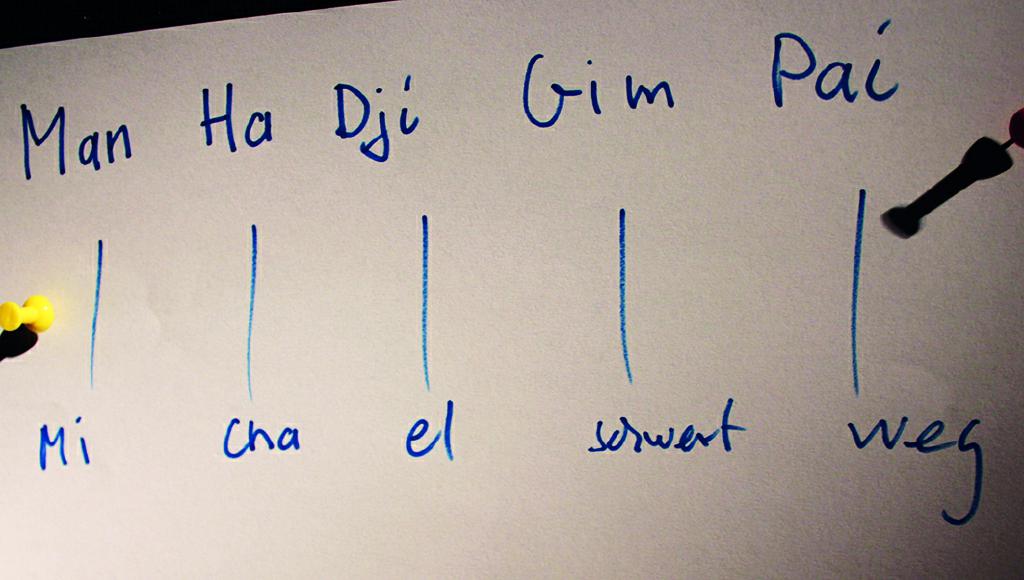 Man Ha Dji Gim Pai
Mi cha el schwert weg